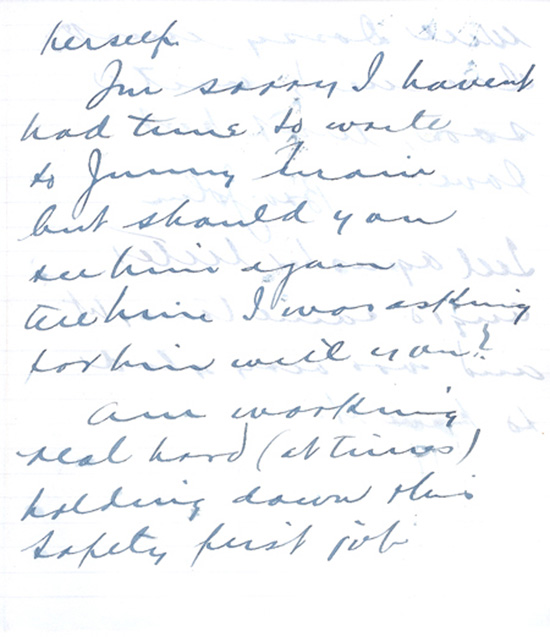 herself.
I'm sorry I havent
had time to write
to Jimmy
but should you
see him again
tell him I was asking
for him will you?
Am working
real hard (at times)
holding down this
safety first job